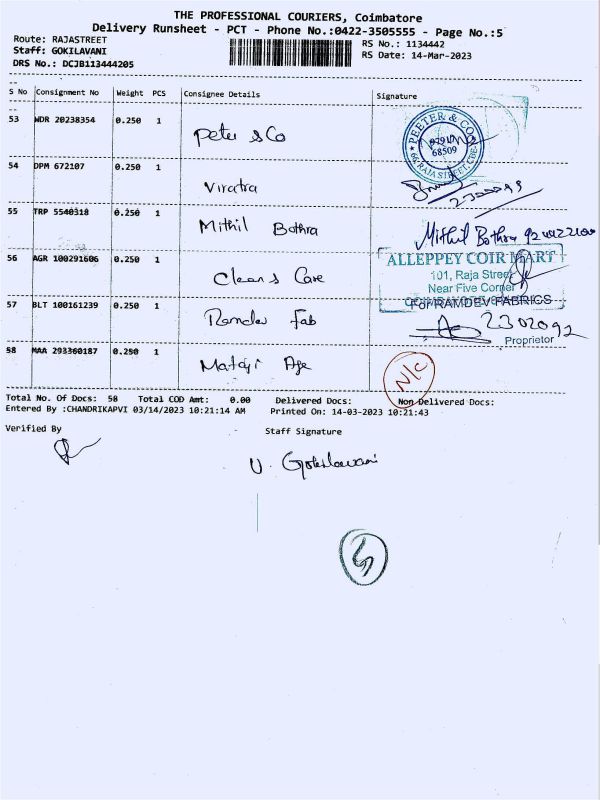 THE PROFESSIONAL COURIERS, Coimbatore
Delivery Runsheet - PCT - Phone No.:0422-3505555 - Page No.:5
Route: RAJASTREET
Staff: GOKILAVANI
DRS No.: DCJB113444205
RS No.: 1134442
RS Date: 14-Mar-2023
S No Consignment No Weight PCS Consignee Details Signature
53 WDR 20238354 0.250 1 Peter & Co
PEETER & CO
68509
66, RAJA STREET, CBE
54 DPM 672107 0.250 1 Viratra
2300099
55 TRP 5540318 0.250 1 Mithil Bothra Mithil Bothra
56 AGR 100291606 0.250 1 Clean & Care
ALLEPPEY COIR MART
101, Raja Street
Near Five Corner
57 BLT 100161239 0.250 1 Ramdev Fab
For RAMDEV FABRICS
2302092
Proprietor
58 MAA 293360187 0.250 1 Mataji Age
N/C
Total No. Of Docs: 58 Total COD Amt: 0.00 Delivered Docs: Non Delivered Docs:
Entered By :CHANDRIKAPVI 03/14/2023 10:21:14 AM Printed On: 14-03-2023 10:21:43
Verified By Staff Signature
U. Gokilavani